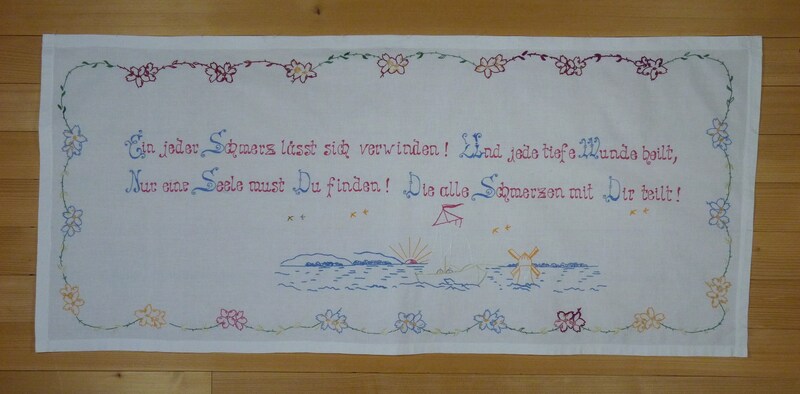 Ein jeder Schmerz lässt sich verwinden! Und jede tiefe Wunde heilt,
Nur eine Seele must Du finden! Die alle Schmerzen mit Dir teilt!